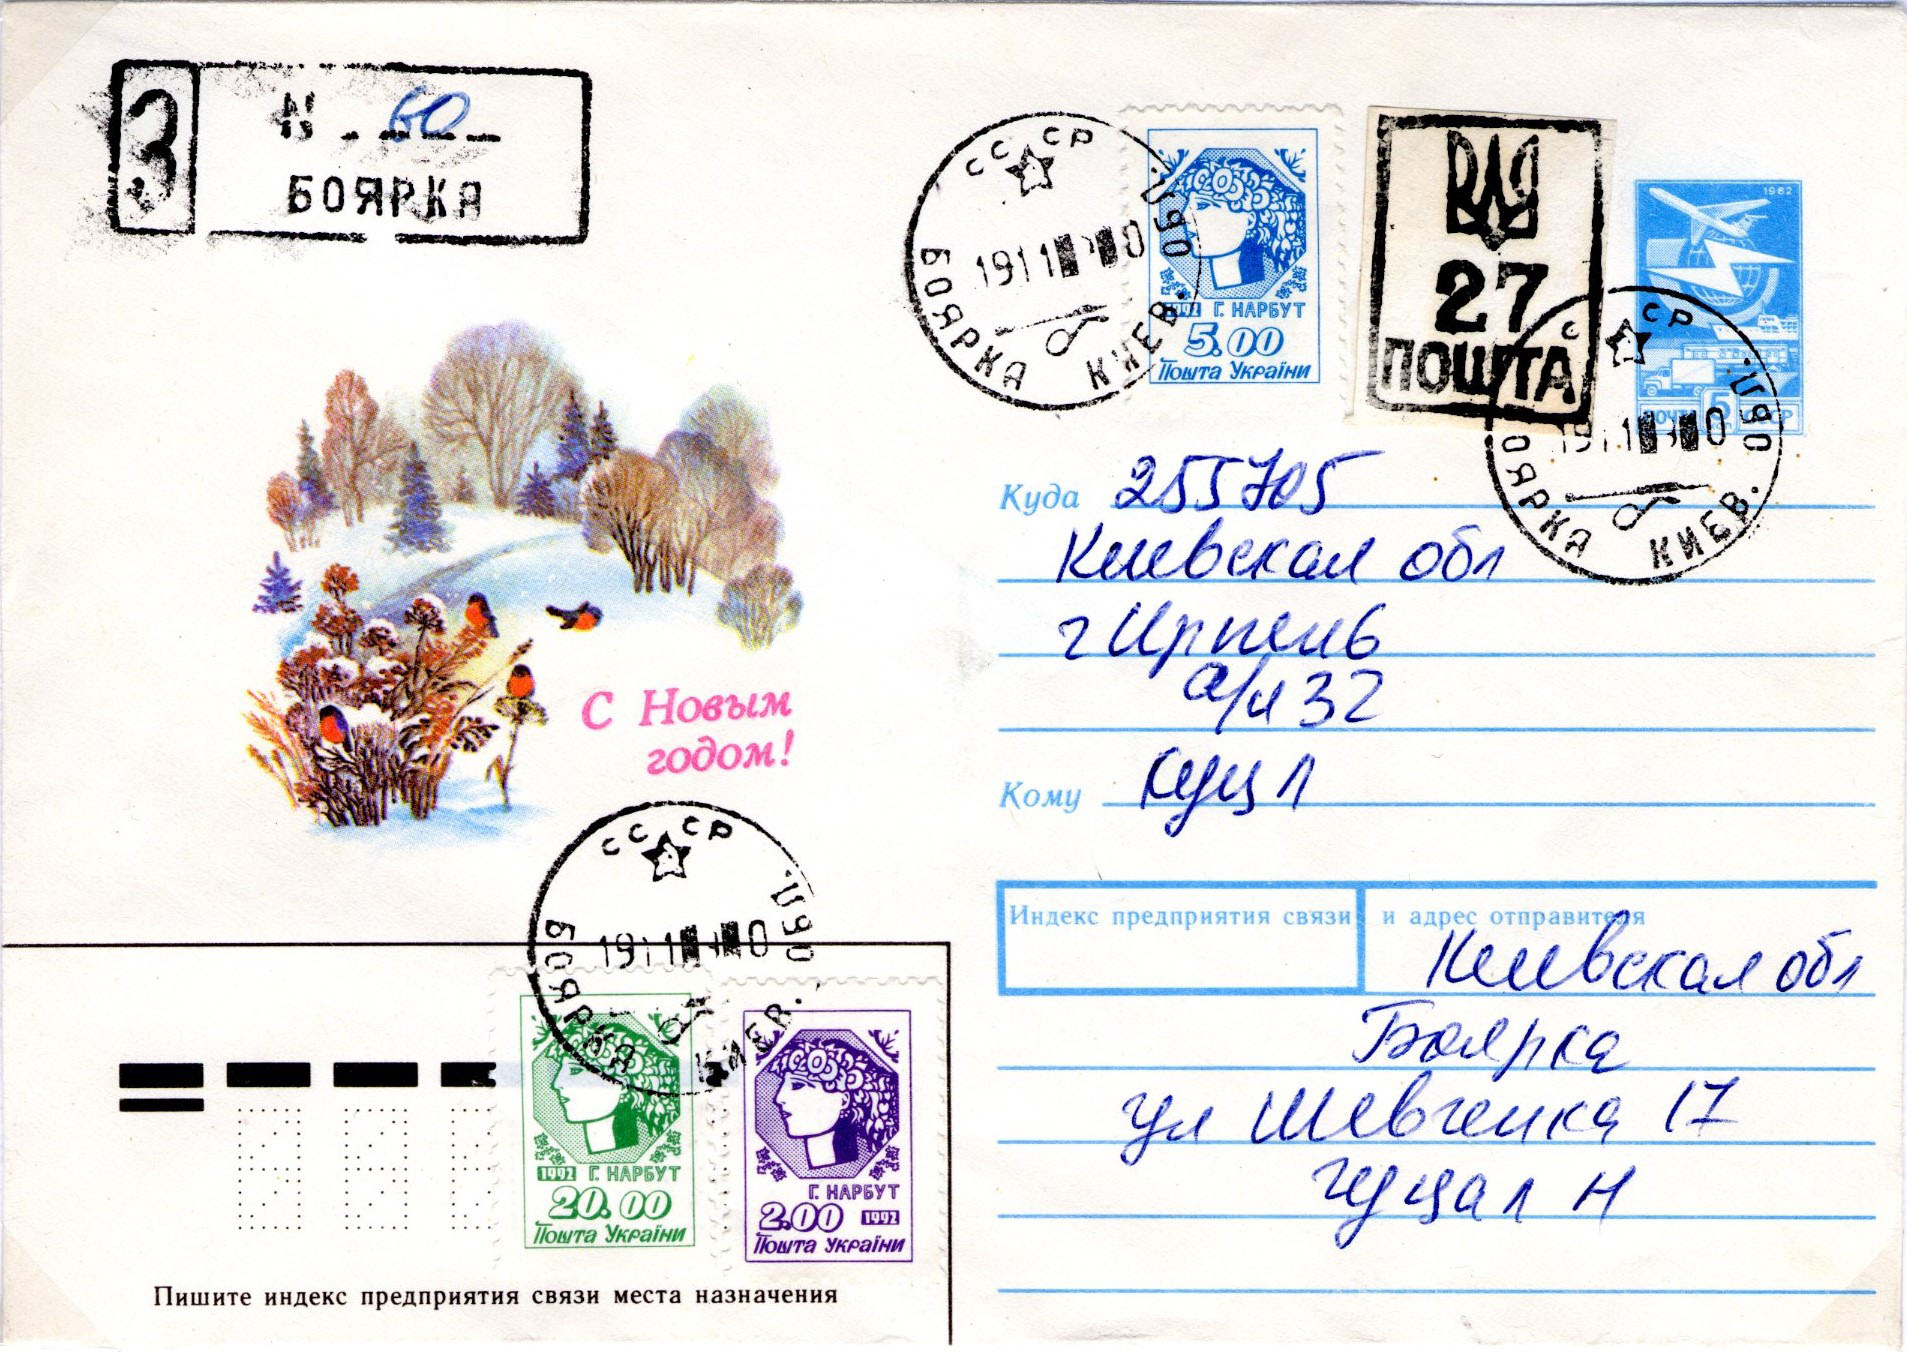 З
N 60
БОЯРКА
СССР
БОЯРКА КИЕВ. ОБЛ.
1911 0
1992 Г. НАРБУТ
5.00
Пошта України
27
ПОШТА
1982
ПОЧТА 5 СССР
СССР
БОЯРКА КИЕВ. ОБЛ.
1911 0
Куда 255705
Киевская обл
г Ирпень
а/я 32
Кому Куц Л
С Новым
годом!
СССР
БОЯРКА КИЕВ. ОБЛ.
1911 0
Индекс предприятия связи и адрес отправителя
Киевская обл
Боярка
ул Шевченка 17
Н
1992 Г. НАРБУТ
20.00
Пошта України
Г. НАРБУТ
2.00 1992
Пошта України
Пишите индекс предприятия связи места назначения